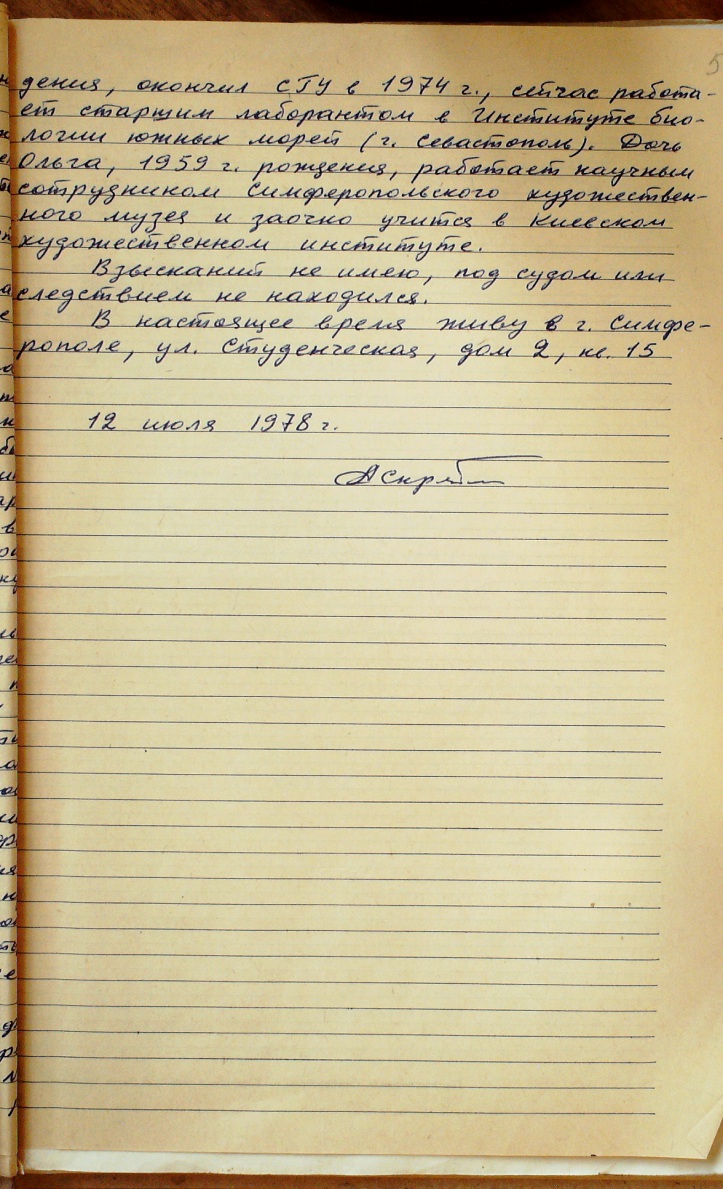 5
дения, окончил СГУ в 1974 г., сейчас работа-
ет старшим лаборантом в Институте био-
логии южных морей (г. Севастополь). Дочь
Ольга, 1959 г. рождения, работает научным
сотрудником Симферопольского художествен-
ного музея и заочно учится в Киевском
художественном институте.
Взысканий не имею, под судом или
следствием не находился.
В настоящее время живу в г. Симфе-
рополе, ул. Студенческая, дом 2, кв. 15
12 июля 1978 г.